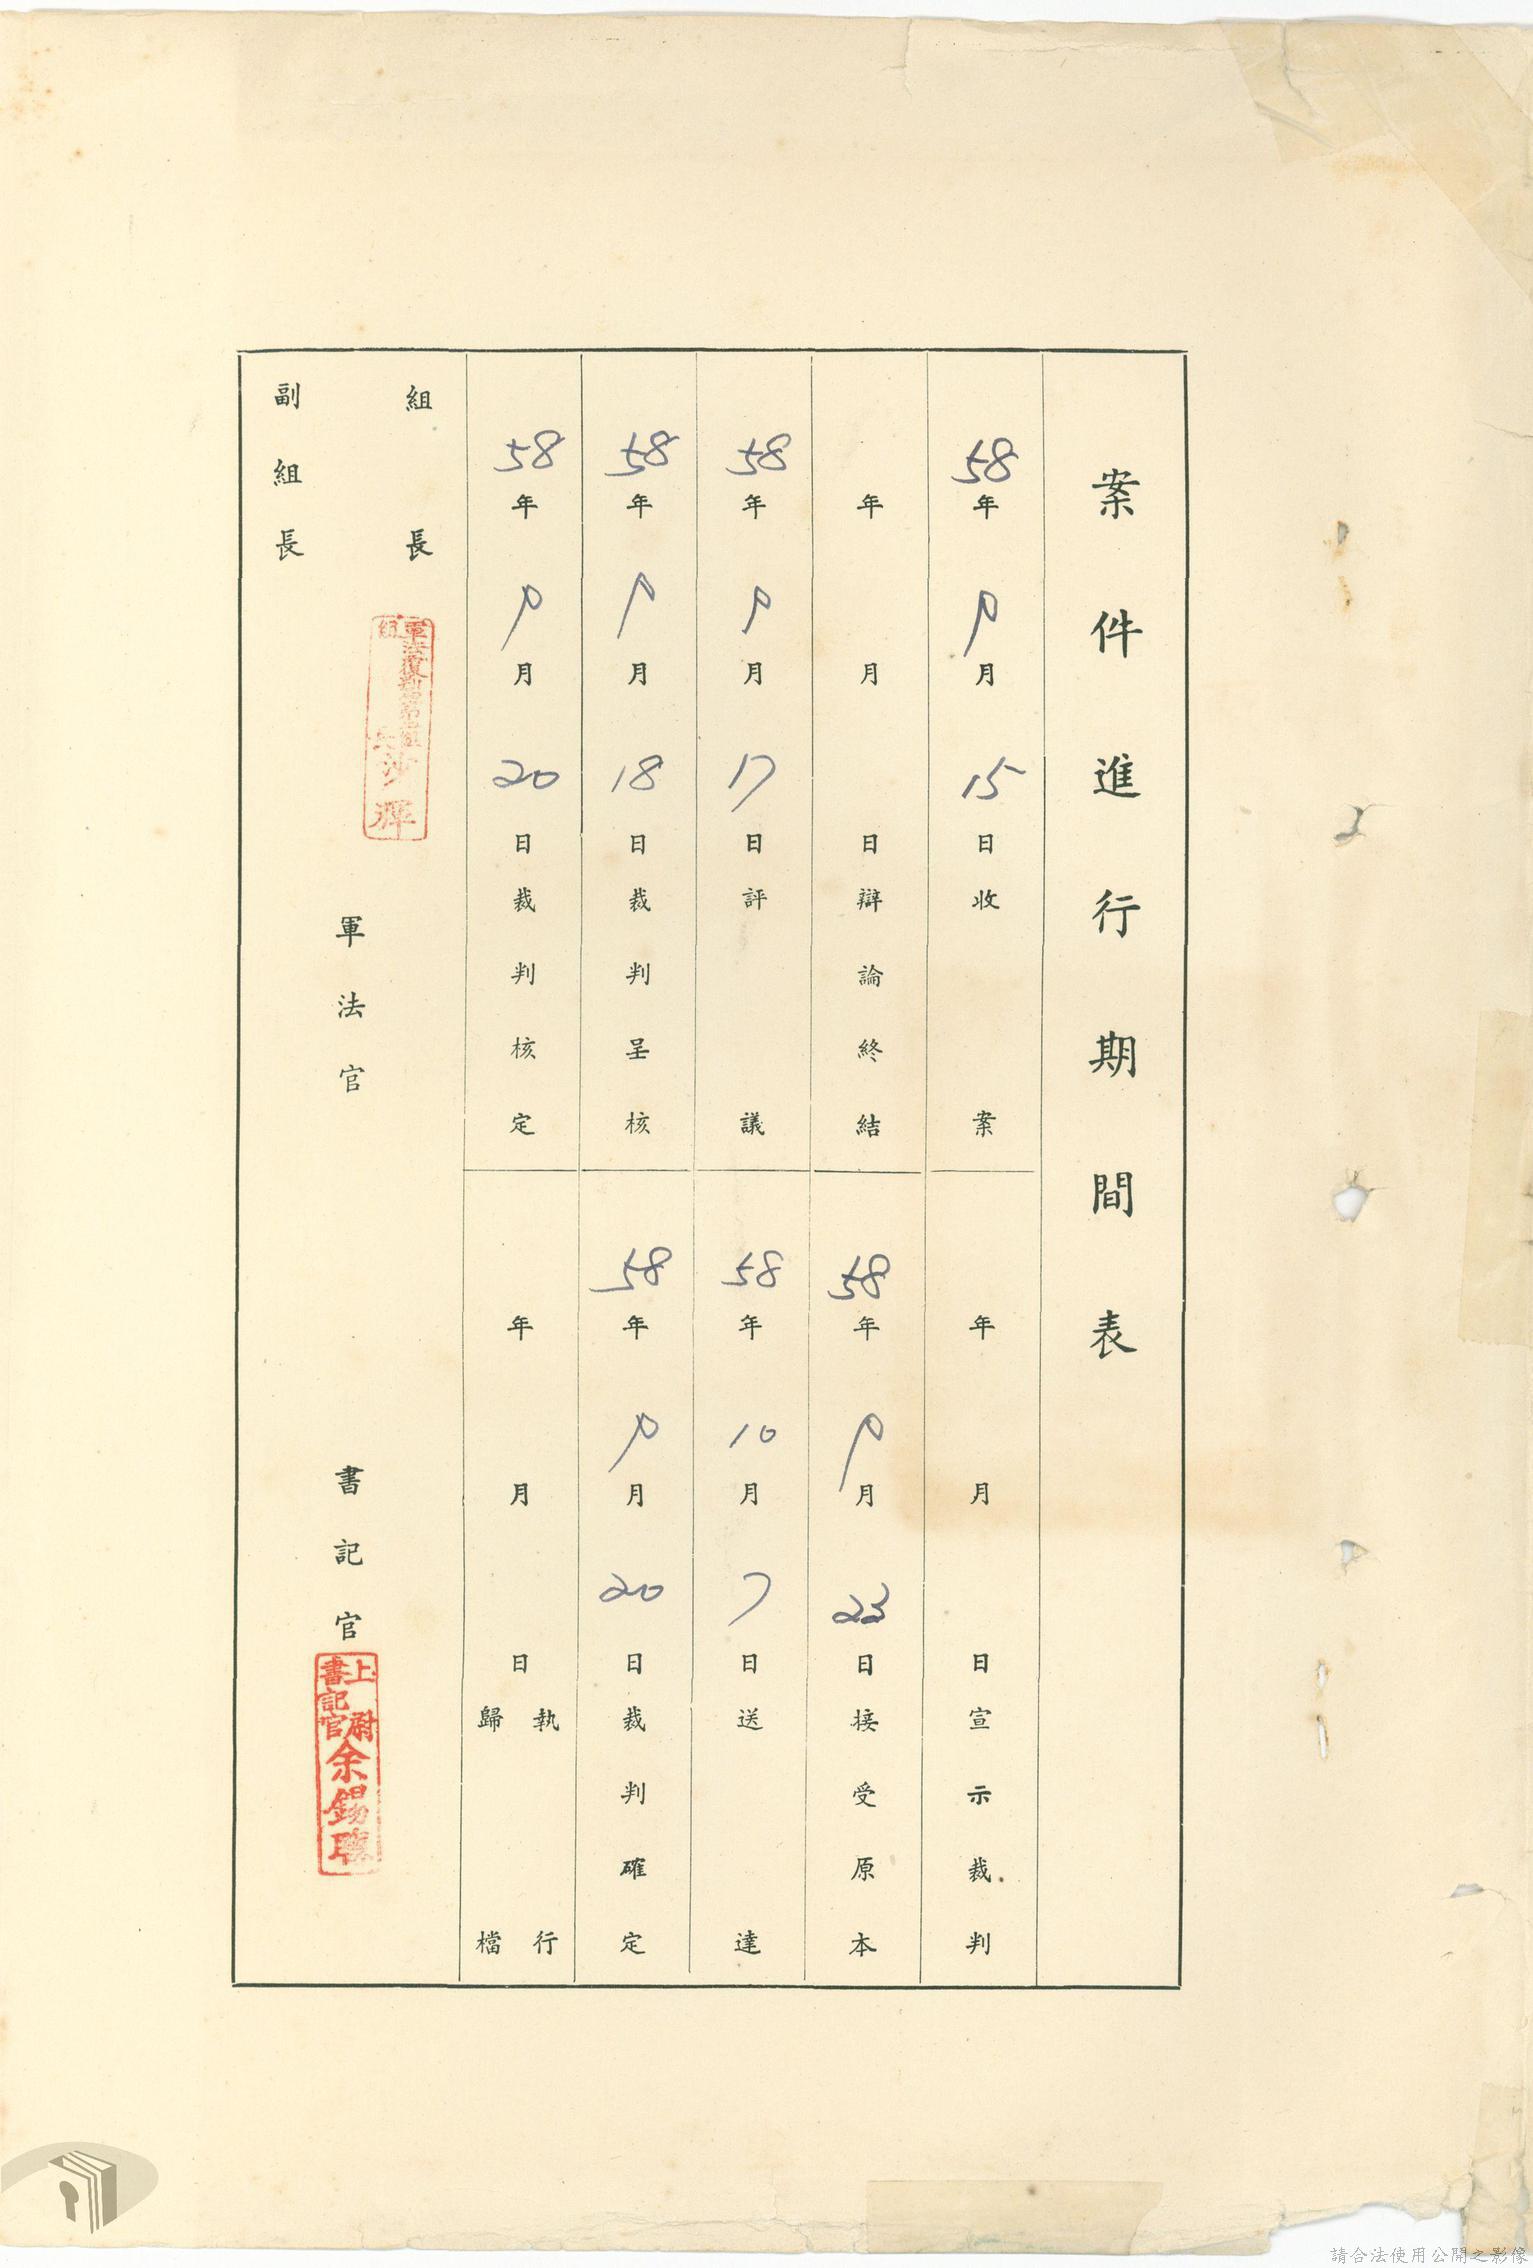 案件進行期間表
58年9月15日收案
年月日宣示裁判
年月日辯論終結
58年9月23日接受原本
58年9月17日評議
58年10月7日送達
58年9月18日裁判呈核
58年9月20日裁判確定
58年9月20日裁判核定
年月日執行歸檔
組長
副組長
軍法官
書記官
上尉書記官余錫聰
2
請合法使用公開之影像